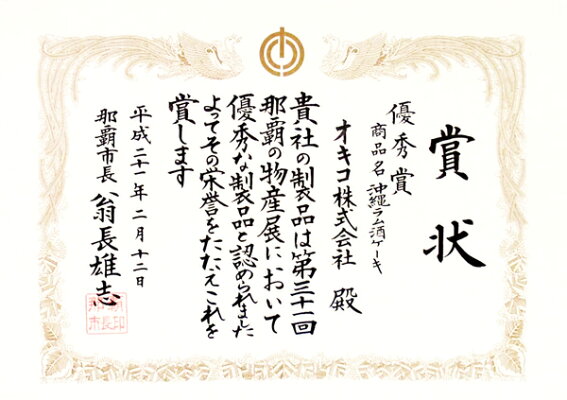 賞状
優秀賞
商品名 沖縄ラム酒ケーキ
オキコ株式会社 殿
貴社の製品は第三十一回
那覇の物産展において
優秀な製品と認められました
よってその栄誉をたたえこれを
賞します
平成二十一年二月十二日
那覇市長 翁長雄志